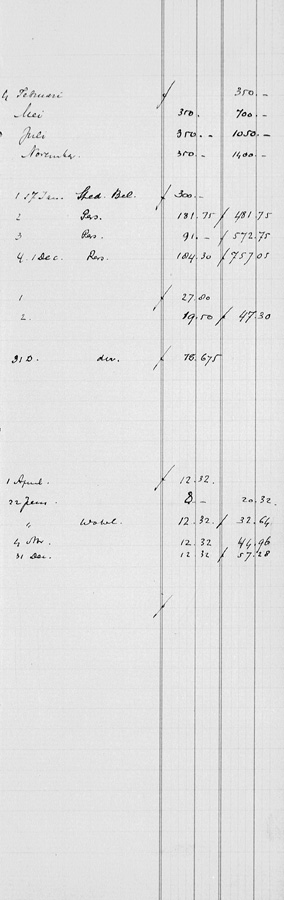 4 Februari ƒ 350.-
Mei 350. 700.-
Juli 350.- 1050.-
November. 350 - 1400.-
1 17 Jan. Sted. Bel. ƒ 300.-
2 Pers. 181.75 ƒ 481.75
3 Pers. 91.- ƒ 572.75
4 1 Dec. Pers. 184.30 ƒ 757.05
1 ƒ 27.80
2. 19.50 ƒ 47.30
31 D. div. ƒ 16.675
1 April. ƒ 12.32.
22 8.- 20.32.
" 12.32. ƒ 32.64
4 12.32 44.96
31 Dec. 12.32 ƒ 57.28
ƒ